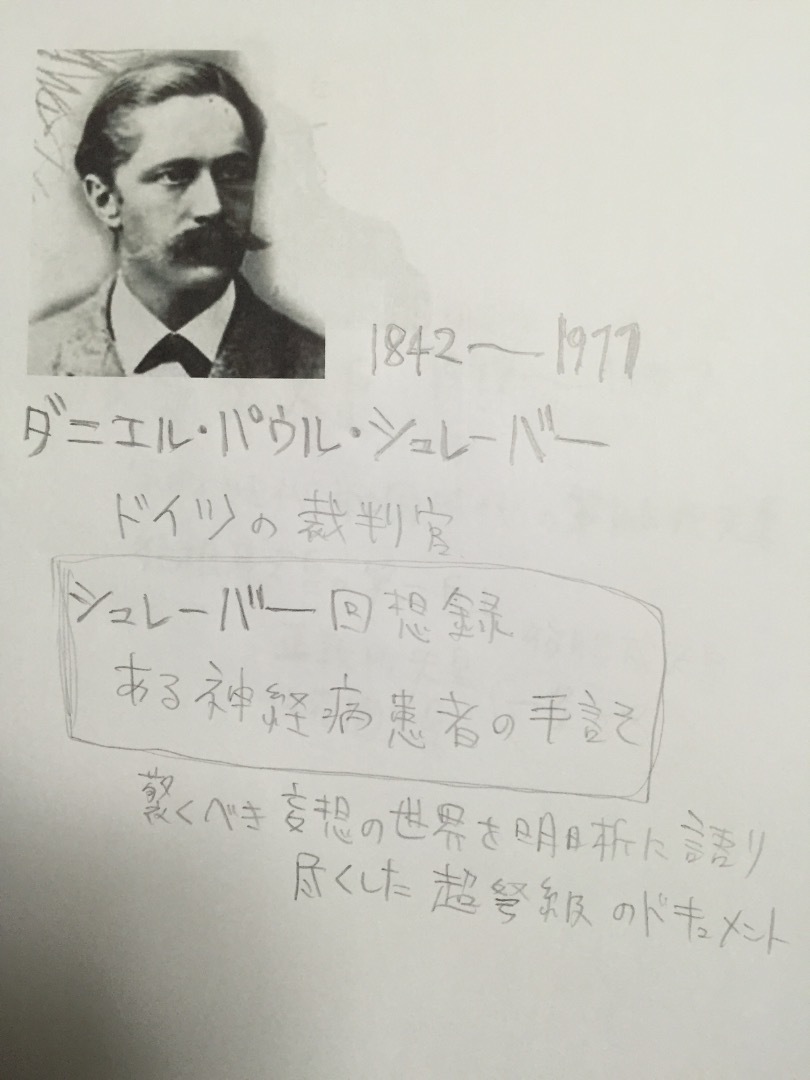 1842〜1977
ダニエル・パウル・シュレーバー
ドイツの裁判官
シュレーバー回想録
ある神経病患者の手記
驚くべき妄想の世界を明晰に語り
尽くした超弩級のドキュメント